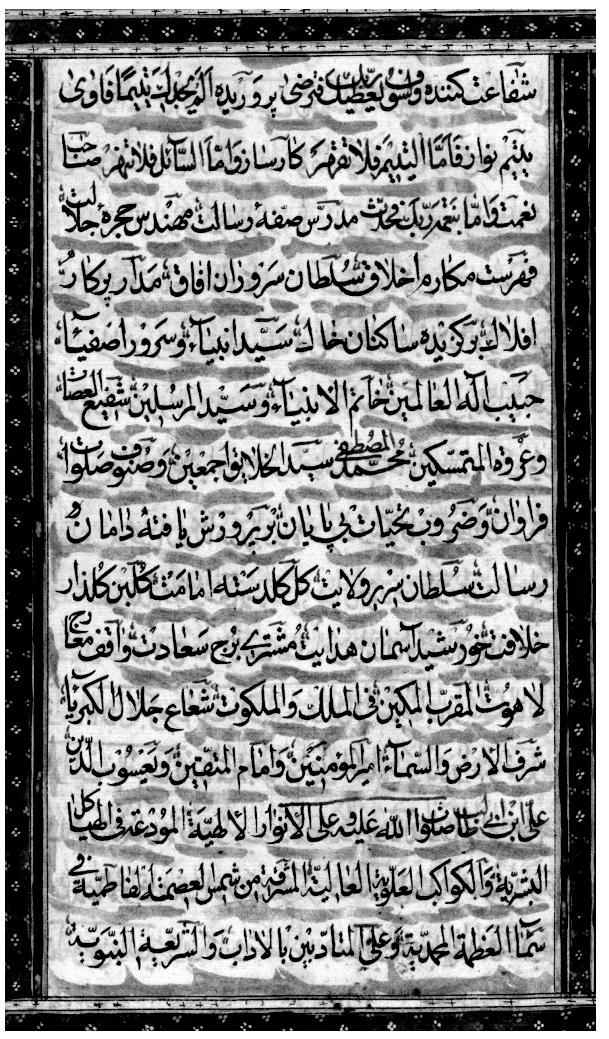 شفاعت کننده ولسوف یعطیک ربک فترضی پرورده الم یجدک یتیما فاوی
یتیم نواز فاما الیتیم فلا تقهر کارساز واما السائل فلا تنهر صاحب
نعمت واما بنعمة ربک فحدث مدرس صفهٔ رسالت مهندس حجرهٔ جلالت
فهرست مکارم اخلاق سلطان سروران افاق مدار پرکار
افلاک برکزیده ساکنان خاک سید انبیاء و سرور اصفیاء
حبیب اله العالمین خاتم الانبیاء و سید المرسلین شفیع العصات
وعروة المتمسکین محمد المصطفی سید الخلایق اجمعین وصنوف صلوات
فراوان وضروب تحیات بی پایان بر پرورش یافتهٔ دامان
رسالت سلطان سریر ولایت کل کلدسته امامت کلبن کلذار
خلافت خورشید آسمان هدایت مشتری برج سعادت واقف معارج
لاهوت المقرب المکین فی الملک والملکوت شعاع جلال الکبریاء
شرف الارض والسماء امیر المؤمنین وامام المتقین ویعسوب الدین
علی ابن ابی طالب صلوات الله علیه وعلی الانوار الالهیة المودعة فی الهیاکل
البشریة والکواکب العلویة العالیة المشرقة من شمس العصمة الفاطمیة فی
سماء العظمة المحمدیة وعلی المتادبین بالاداب والشریعة النبویة